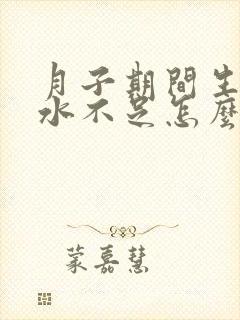 月子期間生
水不足怎麼
蒙嘉慧